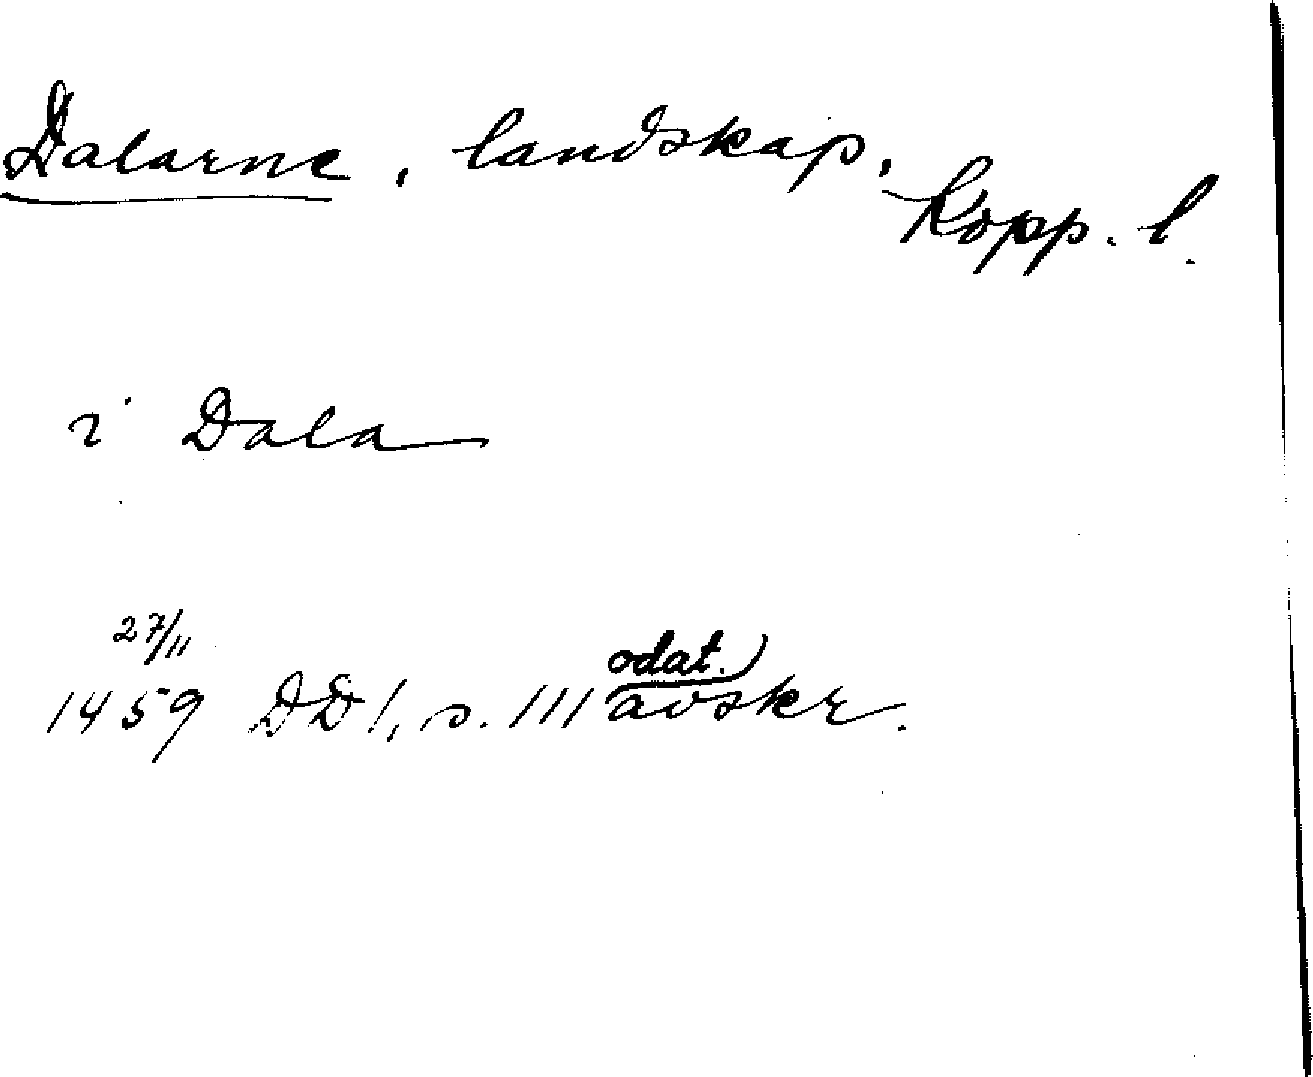 Dalarne, landskap,
Kopp. l.
i Dala
27/11
odat.)
1459 DD 1, s. 111 avskr.